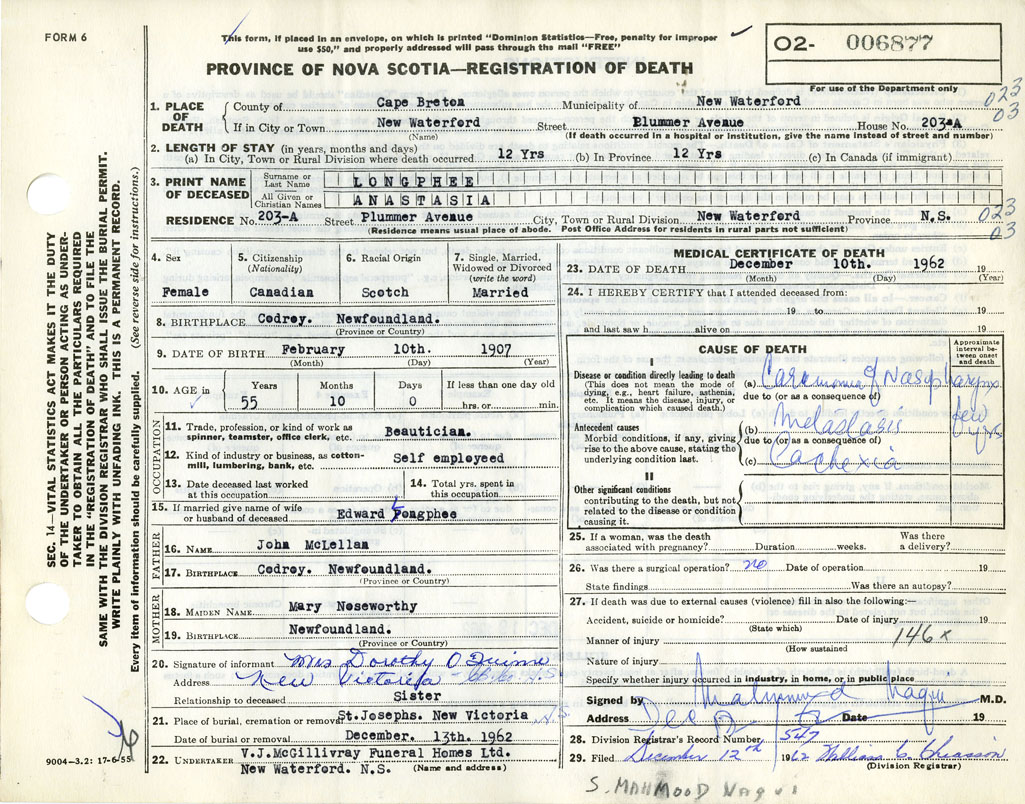 FORM 6
This form, if placed in an envelope, on which is printed "Dominion Statistics—Free, penalty for improper
use $50," and properly addressed will pass through the mail "FREE"
PROVINCE OF NOVA SCOTIA—REGISTRATION OF DEATH
O2- 006877
For use of the Department only
023
03
1. PLACE OF DEATH { County of Cape Breton Municipality of New Waterford
If in City or Town New Waterford Street Plummer Avenue House No. 203-A
(Name) (If death occurred in a hospital or institution, give the name instead of street and number)
2. LENGTH OF STAY (in years, months and days)
(a) In City, Town or Rural Division where death occurred 12 Yrs (b) In Province 12 Yrs (c) In Canada (if immigrant)
3. PRINT NAME OF DECEASED { Surname or Last Name LONGPHEE
All Given or Christian Names ANASTASIA
RESIDENCE No. 203-A Street Plummer Avenue City, Town or Rural Division New Waterford Province N.S.
(Residence means usual place of abode. Post Office Address for residents in rural parts not sufficient)
023
03
4. Sex 5. Citizenship (Nationality) 6. Racial Origin 7. Single, Married, Widowed or Divorced (write the word)
Female Canadian Scotch Married
8. BIRTHPLACE Codroy. Newfoundland.
(Province or Country)
9. DATE OF BIRTH February 10th. 1907
(Month) (Day) (Year)
10. AGE in Years Months Days If less than one day old
55 10 0 hrs. or min.
OCCUPATION
11. Trade, profession, or kind of work as spinner, teamster, office clerk, etc. Beautician.
12. Kind of industry or business, as cotton-mill, lumbering, bank, etc. Self employeed
13. Date deceased last worked at this occupation
14. Total yrs. spent in this occupation
15. If married give name of wife or husband of deceased Edward Longphee
FATHER
16. NAME John McLellan
17. BIRTHPLACE Codroy. Newfoundland.
(Province or Country)
MOTHER
18. MAIDEN NAME Mary Noseworthy
19. BIRTHPLACE Newfoundland.
(Province or Country)
20. Signature of informant Mrs Dorothy O'Quinn
Address New Victoria
Relationship to deceased Sister
21. Place of burial, cremation or removal St.Josephs. New Victoria N.S.
Date of burial or removal December. 13th. 1962
22. UNDERTAKER V.J.McGillivray Funeral Homes Ltd.
New Waterford. N.S. (Name and address)
MEDICAL CERTIFICATE OF DEATH
23. DATE OF DEATH December 10th. 1962 19
(Month) (Day) (Year)
24. I HEREBY CERTIFY that I attended deceased from:
19 to 19
and last saw h alive on 19
CAUSE OF DEATH
Approximate interval between onset and death
I
Disease or condition directly leading to death
(This does not mean the mode of dying, e.g., heart failure, asthenia, etc. It means the disease, injury, or complication which caused death.)
(a) Carcinoma of Nasopharynx
due to (or as a consequence of)
Antecedent causes
Morbid conditions, if any, giving rise to the above cause, stating the underlying condition last.
(b) Metastasis few yrs
due to (or as a consequence of)
(c) Cachexia
II
Other significant conditions
contributing to the death, but not related to the disease or condition causing it.
25. If a woman, was the death associated with pregnancy? Duration weeks. Was there a delivery?
26. Was there a surgical operation? no Date of operation 19
State findings Was there an autopsy?
27. If death was due to external causes (violence) fill in also the following:—
Accident, suicide or homicide? Date of injury 19
(State which)
Manner of injury 146x
(How sustained)
Nature of injury
Specify whether injury occurred in industry, in home, or in public place
Signed by Mahmood Naqui M.D.
Address Date 19
28. Division Registrar's Record Number 547
29. Filed December 12th 1962 William C. Chiasson
(Division Registrar)
S. MAHMOOD NAQUI
SEC. 14—VITAL STATISTICS ACT MAKES IT THE DUTY
OF THE UNDERTAKER OR PERSON ACTING AS UNDER-
TAKER TO OBTAIN ALL THE PARTICULARS REQUIRED
IN THE "REGISTRATION OF DEATH" AND TO FILE THE
SAME WITH THE DIVISION REGISTRAR WHO SHALL ISSUE THE BURIAL PERMIT.
WRITE PLAINLY WITH UNFADING INK. THIS IS A PERMANENT RECORD.
Every item of information should be carefully supplied. (See reverse side for instructions.)
9004—3.2: 17-6-55